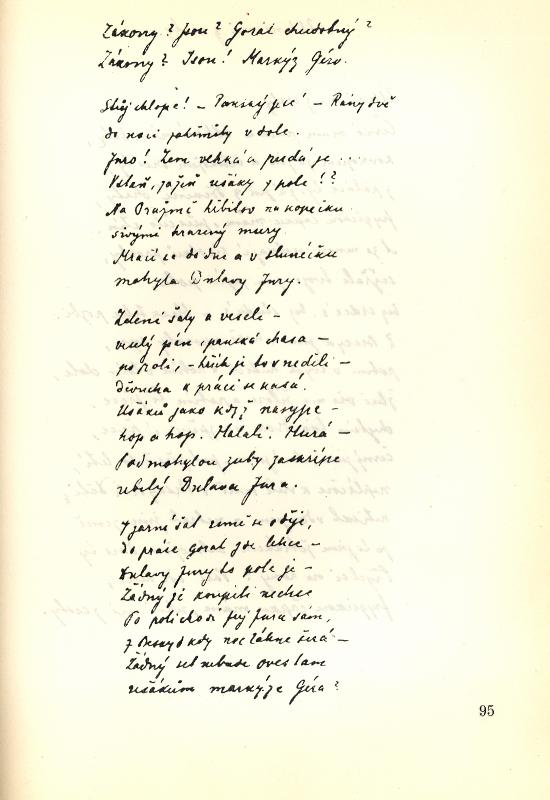 Zákony? Jsou? Goral chudobný?
Zákony? Jsou! Markýz Géro.
Stůj chlope! – Panský jsi – Rány dvě
do noci zahřměly v dole.
Juro! Zem velká a pudá je ...
Vstaň, zažeň ušáky z pole!?
Na Pražmě hřbitov na kopečku
sivými hrazený mury.
Mračí se do dne a v slunéčku
mohyla Dulavy Jury.
Zelené šaty a veselí –
veselý pán, panská chasa –
po poli, – hřích je to v neděli –
děvucha k práci se kasá.
Ušáků jako když nasype –
hop a hop. Halali. Hurá –
Pod mohylou zuby zaskřípe
ubitý Dulava Jura.
V jarní šat země se oděje,
do práce goral jde lehce –
Dulavy Jury to pole je –
Žádný je koupiti nechce
Po poli chodí prý Jura sám,
z Beskyd kdy noc táhne širá –
Žádný set nebude oves tam
ušákům markýze Géra?
95